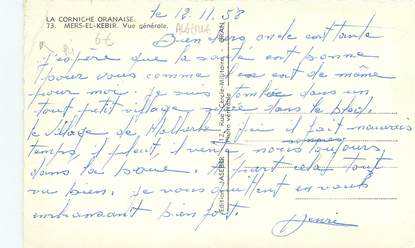 LA CORNICHE ORANAISE.
73. MERS-EL-KÉBIR. Vue générale.
le 13.11.58
ALGERIE
6€
Bien cher oncle et tante
j'espère que la santé est bonne
pour vous comme elle est de même
pour moi. je suis tombé dans un
tout petit village situé dans le bled.
le village de Malherbe ici il fait mauvais
temps, il pleut, il vente, nous sommes toujours
dans la boue. A part cela tout
va bien. je vous quittent en vous
embrassant bien fort.
Henri
Edition JASEBER, 12, Rue Cercle-Militaire - ORAN
Photo véritable